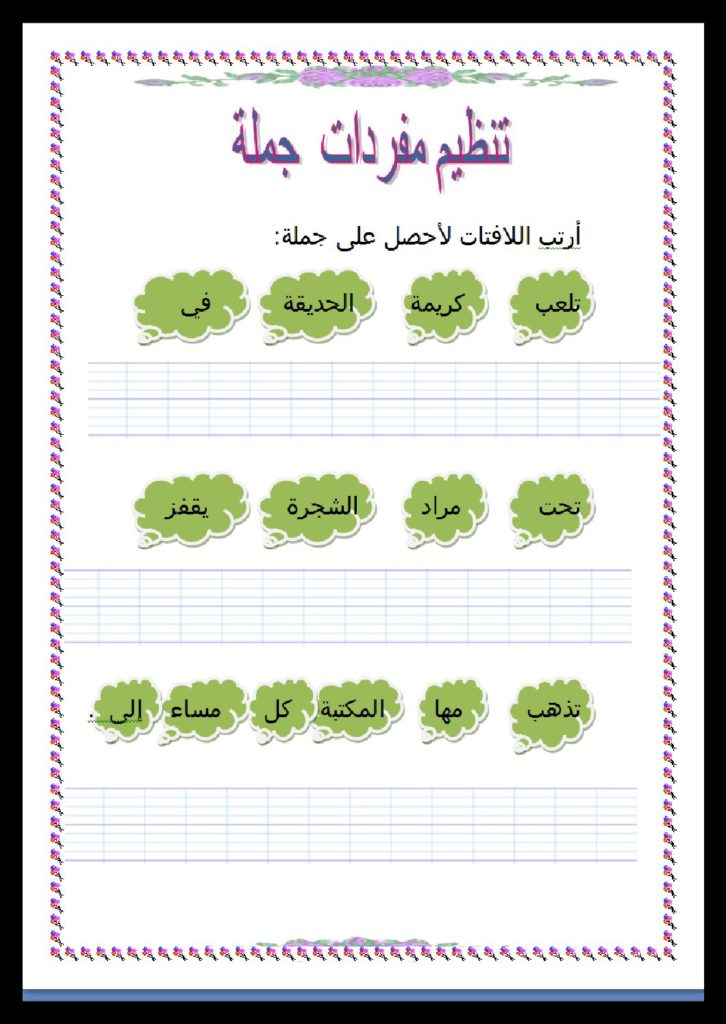 تنظيم مفردات جملة
أرتب اللافتات لأحصل على جملة:
تلعب كريمة الحديقة في
تحت مراد الشجرة يقفز
تذهب مها المكتبة كل مساء إلى .